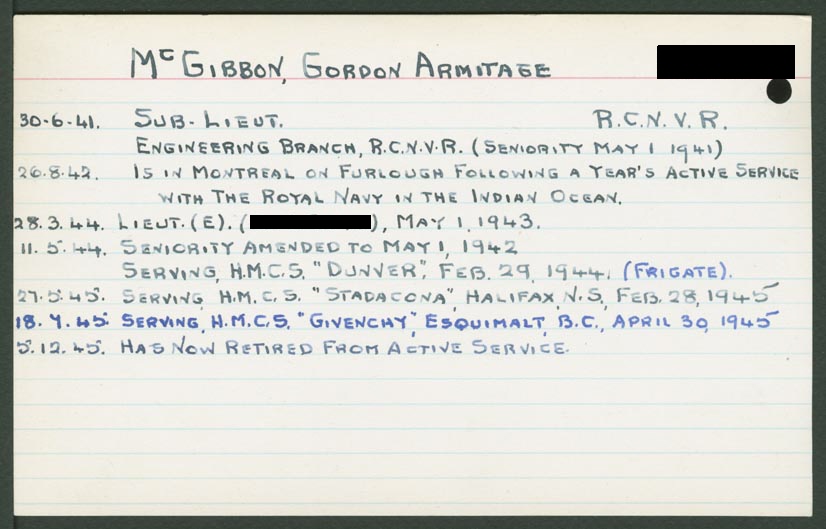 McGIBBON, GORDON ARMITAGE
30-6-41. SUB-LIEUT. R.C.N.V.R.
ENGINEERING BRANCH, R.C.N.V.R. (SENIORITY MAY 1 1941)
26.8.42. IS IN MONTREAL ON FURLOUGH FOLLOWING A YEAR'S ACTIVE SERVICE
WITH THE ROYAL NAVY IN THE INDIAN OCEAN.
28.3.44. LIEUT.(E). ( ), MAY 1, 1943.
11.5.44. SENIORITY AMENDED TO MAY 1, 1942
SERVING, H.M.C.S. "DUNVER", FEB. 29, 1944. (FRIGATE).
27.5.45. SERVING H.M.C.S. "STADACONA", HALIFAX, N.S, FEB. 28, 1945
18.7.45. SERVING, H.M.C.S. "GIVENCHY", ESQUIMALT, B.C., APRIL 30, 1945
5.12.45. HAS NOW RETIRED FROM ACTIVE SERVICE.